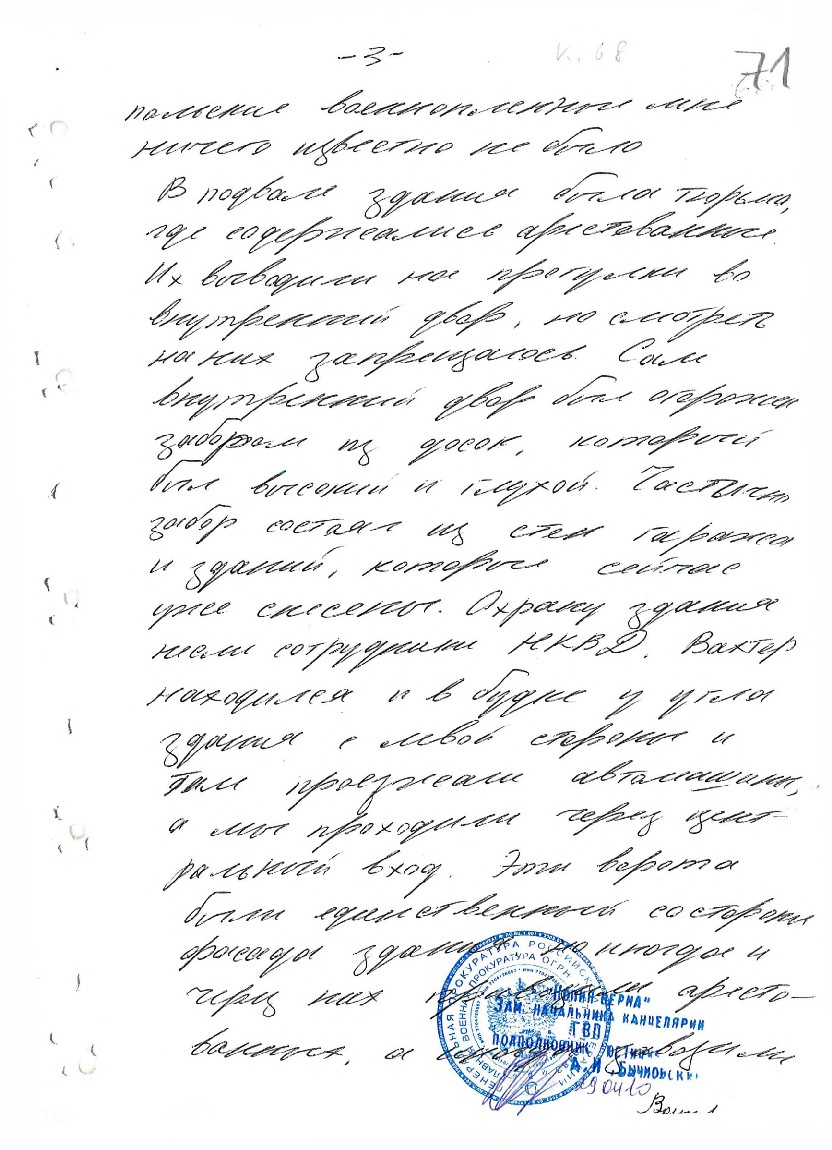 -3-
к. 68
71
польские военнопленные мне
ничего известно не было
В подвале здания была тюрьма,
где содержались арестованные.
Их выводили на прогулки во
внутренний двор, но смотреть
на них запрещалось. Сам
внутренний двор был огорожен
забором из досок, который
был высокий и глухой. Частично
забор состоял из стен гаража
и зданий, которые сейчас
уже снесены. Охрану здания
несли сотрудники НКВД. Вахтер
находился и в будке у угла
здания с левой стороны и
там проезжали автомашины,
а мы проходили через цент-
ральный вход. Эти ворота
были единственный со стороны
фасада здания, но иногда и
через них аресто-
ванных, а
"КОПИЯ ВЕРНА"
ЗАМ. НАЧАЛЬНИКА КАНЦЕЛЯРИИ
ГВП
ПОДПОЛКОВНИК ЮСТИЦИИ
290410